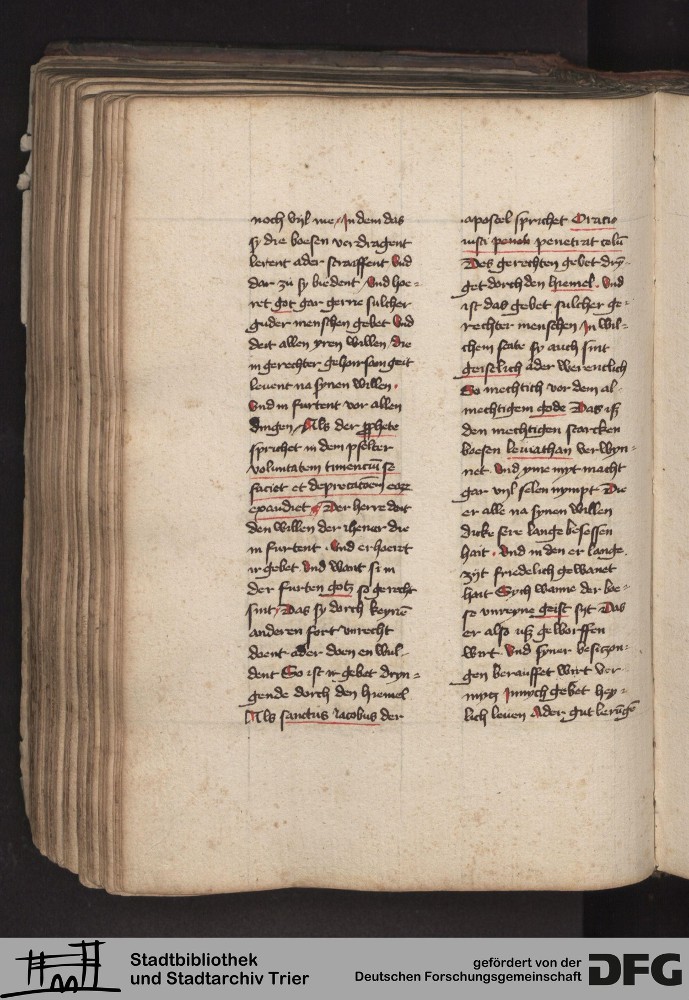 noch vyl me / In dem das
sy die boesen verdragent
lerent ader straeffent Vnd
dar zü sy biedent / Vnd hoe=
ret got gar gerne sulcher
guder menschen gebet Vnd
deit allen yren willen / die
in gerechter gehoirsamgeit
leuent na synen willen .
Vnd in furtent vor allen
dingen / Als der p̄phete
sprichet in dem pselter
voluntatem timenciū se
faciet et deprecacoēm eoꝝ
exaudiet Der herre doit
den willen der ihener die
in furtent . Vnd erhoeret
ir gebet Vnd want si in
der furten gotz so gerecht
sint / Das sy dorch keynē
anderen fort vnrecht
doent ader doen en wul=
dent So ist ir gebet dryn=
gende dorch den hiemel
Als sanctus iacobus der
apostel sprichet Oracio
iusti penetrat celū
Des gerechten gebet dry=
get dorch den hiemel . Vnd
ist das gebet sulcher ge=
rechter menschen In wil=
chem state sy auch sint
geistelich ader werentlich
So mechtich vor dem al=
mechtigem gode Das iß
den mechtigen starcken
boesen leuiathan verwyn=
net . Vnd yme myt macht
gar vyl selen nympt Die
er alle na synen willen
dicke sere lange besessen
hait . Vnd in den er lange
zijt friedelich gewanet
hait Sych wanne der boe=
se vnreyne geist syt Das
er also uß geworffen
wirt Vnd syner besitzon=
gen berauffet wirt ver=
mytz Innych gebet hey=
lich leuen Ader gut lerūge
Stadtbibliothek
und Stadtarchiv Trier
gefördert von der
Deutschen Forschungsgemeinschaft
DFG